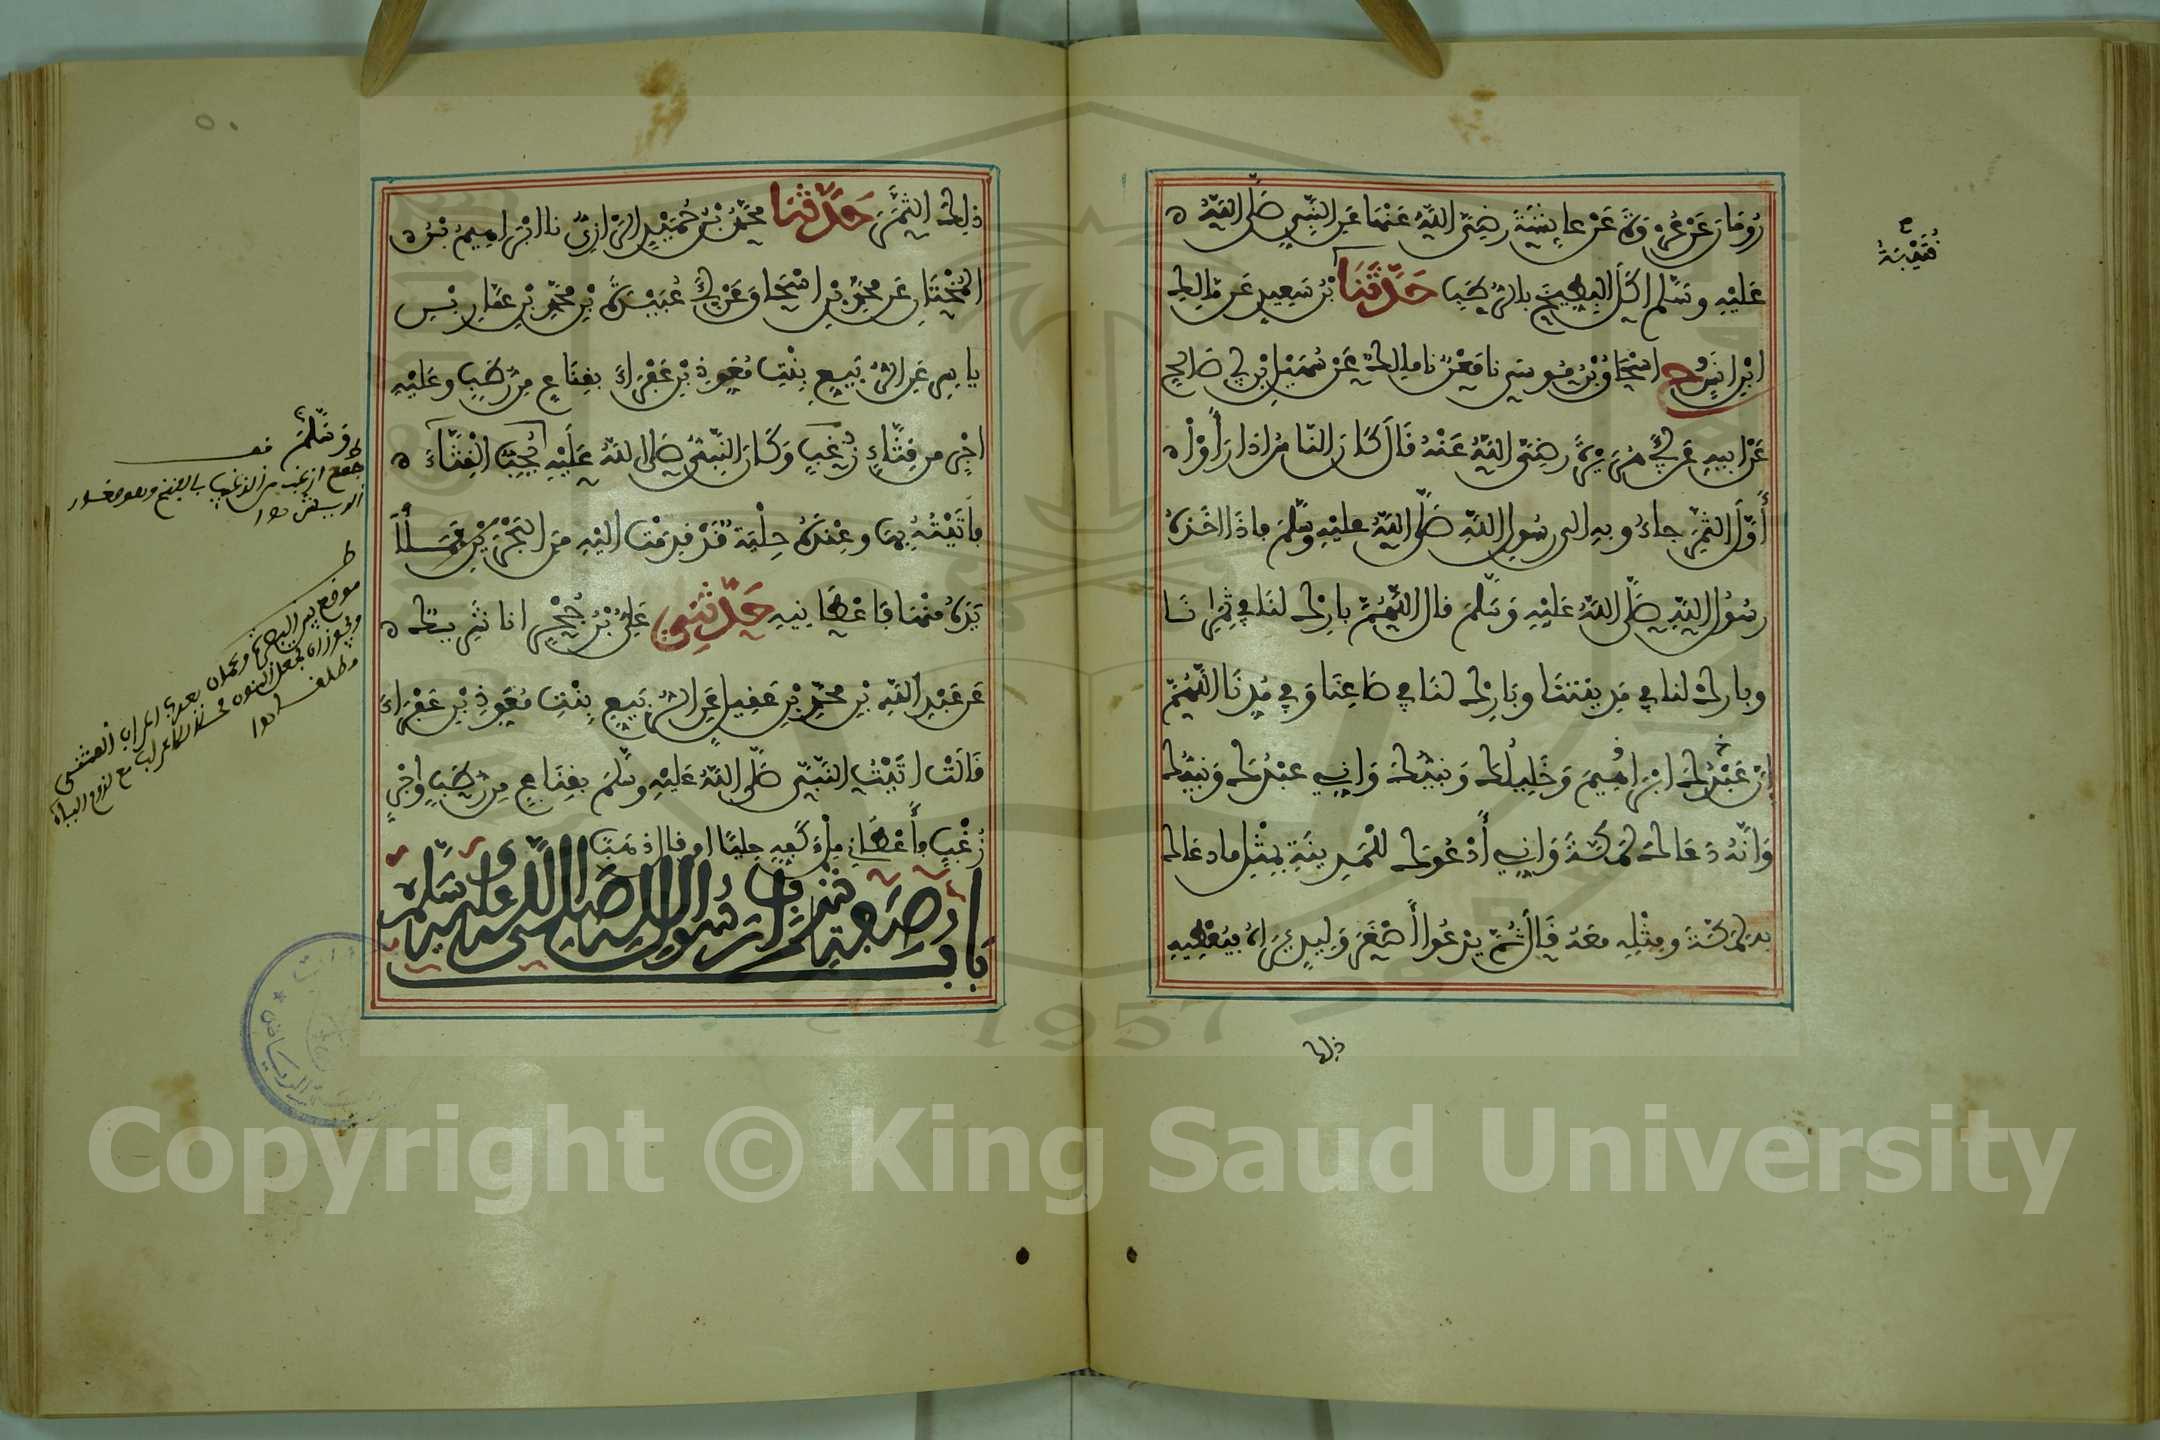 رُومَانَ عَنْ عُرْوَةَ عَنْ عَائِشَةَ رَضِيَ اللَّهُ عَنْهَا عَنِ النَّبِيِّ صَلَّى اللَّهُ
عَلَيْهِ وَسَلَّمَ أَكَلَ الْبِطِّيخَ بِالرُّطَبِ حَدَّثَنَا بْنُ سَعِيدٍ عَنْ مَالِكِ
قُتَيْبَةُ
ابْنِ أَنَسٍ ح إِسْحَاقُ بْنُ مُوسَى نا مَعْنٌ نا مَالِكٌ عَنْ سُهَيْلِ بْنِ أَبِي صَالِحٍ
عَنْ أَبِيهِ عَنْ أَبِي هُرَيْرَةَ رَضِيَ اللَّهُ عَنْهُ قَالَ كَانَ النَّاسُ إِذَا رَأَوْا
أَوَّلَ الثَّمَرِ جَاءُوا بِهِ إِلَى رَسُولِ اللَّهِ صَلَّى اللَّهُ عَلَيْهِ وَسَلَّمَ فَإِذَا أَخَذَهُ
رَسُولُ اللَّهِ صَلَّى اللَّهُ عَلَيْهِ وَسَلَّمَ قَالَ اللَّهُمَّ بَارِكْ لَنَا فِي ثِمَارِنَا
وَبَارِكْ لَنَا فِي مَدِينَتِنَا وَبَارِكْ لَنَا فِي صَاعِنَا وَفِي مُدِّنَا اللَّهُمَّ
إِنَّ إِبْرَاهِيمَ عَبْدُكَ وَخَلِيلُكَ وَنَبِيُّكَ وَإِنِّي عَبْدُكَ وَنَبِيُّكَ
وَإِنَّهُ دَعَاكَ لِمَكَّةَ وَإِنِّي أَدْعُوكَ لِلْمَدِينَةِ بِمِثْلِ مَا دَعَاكَ
بِهِ لِمَكَّةَ وَمِثْلِهِ مَعَهُ قَالَ ثُمَّ يَدْعُو أَصْغَرَ وَلِيدٍ يَرَاهُ فَيُعْطِيهِ
ذلك
ذَلِكَ الثَّمَرَ حَدَّثَنَا مُحَمَّدُ بْنُ حُمَيْدٍ الرَّازِيُّ نا إِبْرَاهِيمُ بْنُ
الْمُخْتَارِ عَنْ مُحَمَّدِ بْنِ إِسْحَاقَ عَنْ أَبِي عُبَيْدَةَ بْنِ مُحَمَّدِ بْنِ عَمَّارِ بْنِ
يَاسِرٍ عَنِ الرُّبَيِّعِ بِنْتِ مُعَوِّذِ بْنِ عَفْرَاءَ بِقِنَاعٍ مِنْ رُطَبٍ وَعَلَيْهِ
أَجْرٍ مِنْ قِثَّاءٍ زُغْبٍ وَكَانَ النَّبِيُّ صَلَّى اللَّهُ عَلَيْهِ يُحِبُّ الْقِثَّاءَ
وَسَلَّمَ
فَأَتَيْتُهُ بِهَا وَعِنْدَهُ حِلْيَةٌ قَدْ قَدِمَتْ إِلَيْهِ مِنَ الْبَحْرَيْنِ فَمَلَأَ
يَدَهُ مِنْهَا فَأَعْطَانِيهِ حَدَّثَنِي عَلِيُّ بْنُ حُجْرٍ انا شَرِيكٌ
عَنْ عَبْدِ اللَّهِ بْنِ مُحَمَّدِ بْنِ عَقِيلٍ عَنِ الرُّبَيِّعِ بِنْتِ مُعَوِّذِ بْنِ عَفْرَاءَ
قَالَتْ أَتَيْتُ النَّبِيَّ صَلَّى اللَّهُ عَلَيْهِ وَسَلَّمَ بِقِنَاعٍ مِنْ رُطَبٍ وَأَجْرٍ
زُغْبٍ فَأَعْطَانِي مِلْءَ كَفِّهِ حُلِيًّا أَوْ قَالَ ذَهَبًا
بَابُ صِفَةِ شَرَابِ رَسُولِ اللَّهِ صَلَّى اللَّهُ عَلَيْهِ وَسَلَّمَ
Copyright © King Saud University
1957